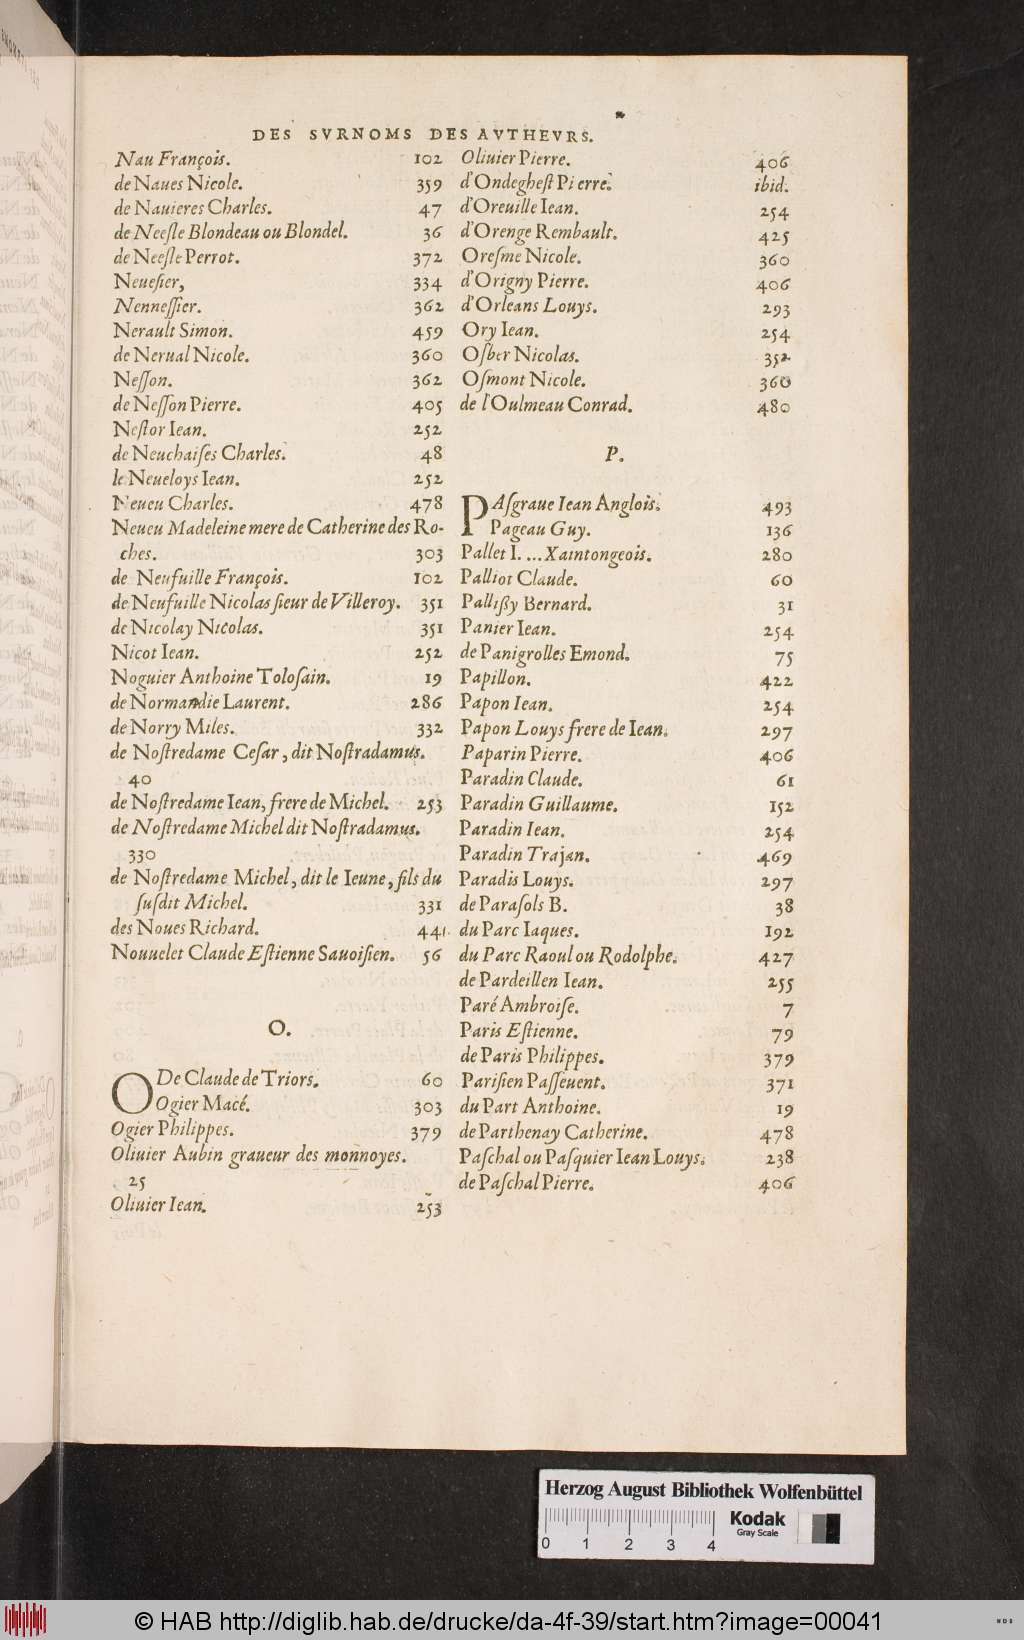 DES SVRNOMS DES AVTHEVRS.
Nau François. 102
de Naues Nicole. 359
de Nauieres Charles. 47
de Neeſle Blondeau ou Blondel. 36
de Neeſle Perrot. 372
Neueſier, 334
Nenneſſier. 362
Nerault Simon. 459
de Nerual Nicole. 360
Neſſon. 362
de Neſſon Pierre. 405
Neſtor Iean. 252
de Neuchaiſes Charles. 48
le Neueloys Iean. 252
Neueu Charles. 478
Neueu Madeleine mere de Catherine des Ro-
ches. 303
de Neufuille François. 102
de Neufuille Nicolas ſieur de Villeroy. 351
de Nicolay Nicolas. 351
Nicot Iean. 252
Noguier Anthoine Toloſain. 19
de Normandie Laurent. 286
de Norry Miles. 332
de Noſtredame Ceſar, dit Noſtradamus.
40
de Noſtredame Iean, frere de Michel. 253
de Noſtredame Michel dit Noſtradamus.
330
de Noſtredame Michel, dit le Ieune, fils du
ſuſdit Michel. 331
des Noues Richard. 441
Nouuelet Claude Eſtienne Sauoiſien. 56
O.
ODe Claude de Triors. 60
Ogier Macé. 303
Ogier Philippes. 379
Oliuier Aubin graueur des monnoyes.
25
Oliuier Iean. 253
Oliuier Pierre. 406
d'Ondegheſt Pierre. ibid.
d'Oreuille Iean. 254
d'Orenge Rembault. 425
Oreſme Nicole. 360
d'Origny Pierre. 406
d'Orleans Louys. 293
Ory Iean. 254
Oſber Nicolas. 352
Oſmont Nicole. 360
de l'Oulmeau Conrad. 480
P.
PAſgraue Iean Anglois. 493
Pageau Guy. 136
Pallet I. ... Xaintongeois. 280
Palliot Claude. 60
Palliſſy Bernard. 31
Panier Iean. 254
de Panigrolles Emond. 75
Papillon. 422
Papon Iean. 254
Papon Louys frere de Iean. 297
Paparin Pierre. 406
Paradin Claude. 61
Paradin Guillaume. 152
Paradin Iean. 254
Paradin Trajan. 469
Paradis Louys. 297
de Paraſols B. 38
du Parc Iaques. 192
du Parc Raoul ou Rodolphe. 427
de Pardeillen Iean. 255
Paré Ambroiſe. 7
Paris Eſtienne. 79
de Paris Philippes. 379
Pariſien Paſſeuent. 371
du Part Anthoine. 19
de Parthenay Catherine. 478
Paſchal ou Paſquier Iean Louys. 238
de Paſchal Pierre. 406
Herzog August Bibliothek Wolfenbüttel
0 1 2 3 4
Kodak
Gray Scale
© HAB http://diglib.hab.de/drucke/da-4f-39/start.htm?image=00041